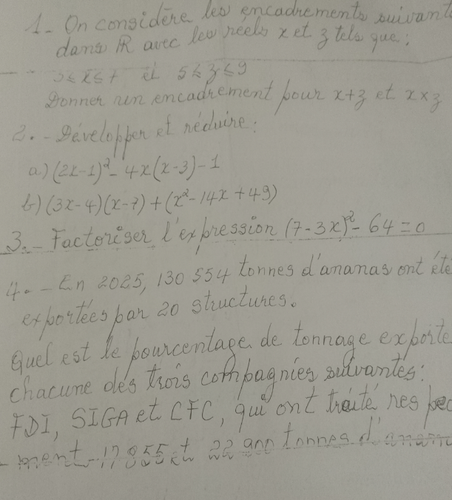 1- On considère les encadrements suivant
dans ℝ avec les réels x et z tels que :
3 ≤ x ≤ 7 et 5 ≤ z ≤ 9
Donner un encadrement pour x+z et x×z
2.- Développer et réduire :
a) (2x-1)² - 4x(x-3) - 1
b) (3x-4)(x-7) + (x² - 14x + 49)
3.- Factoriser l'expression (7-3x)² - 64 = 0
4.- En 2025, 130 554 tonnes d'ananas ont été
exportées par 20 structures.
Quel est le pourcentage de tonnage exporté
chacune des trois compagnies suivantes :
FDI, SIGA et CFC, qui ont traité respec
-ment 17 955 et 22 tonnes d'anana